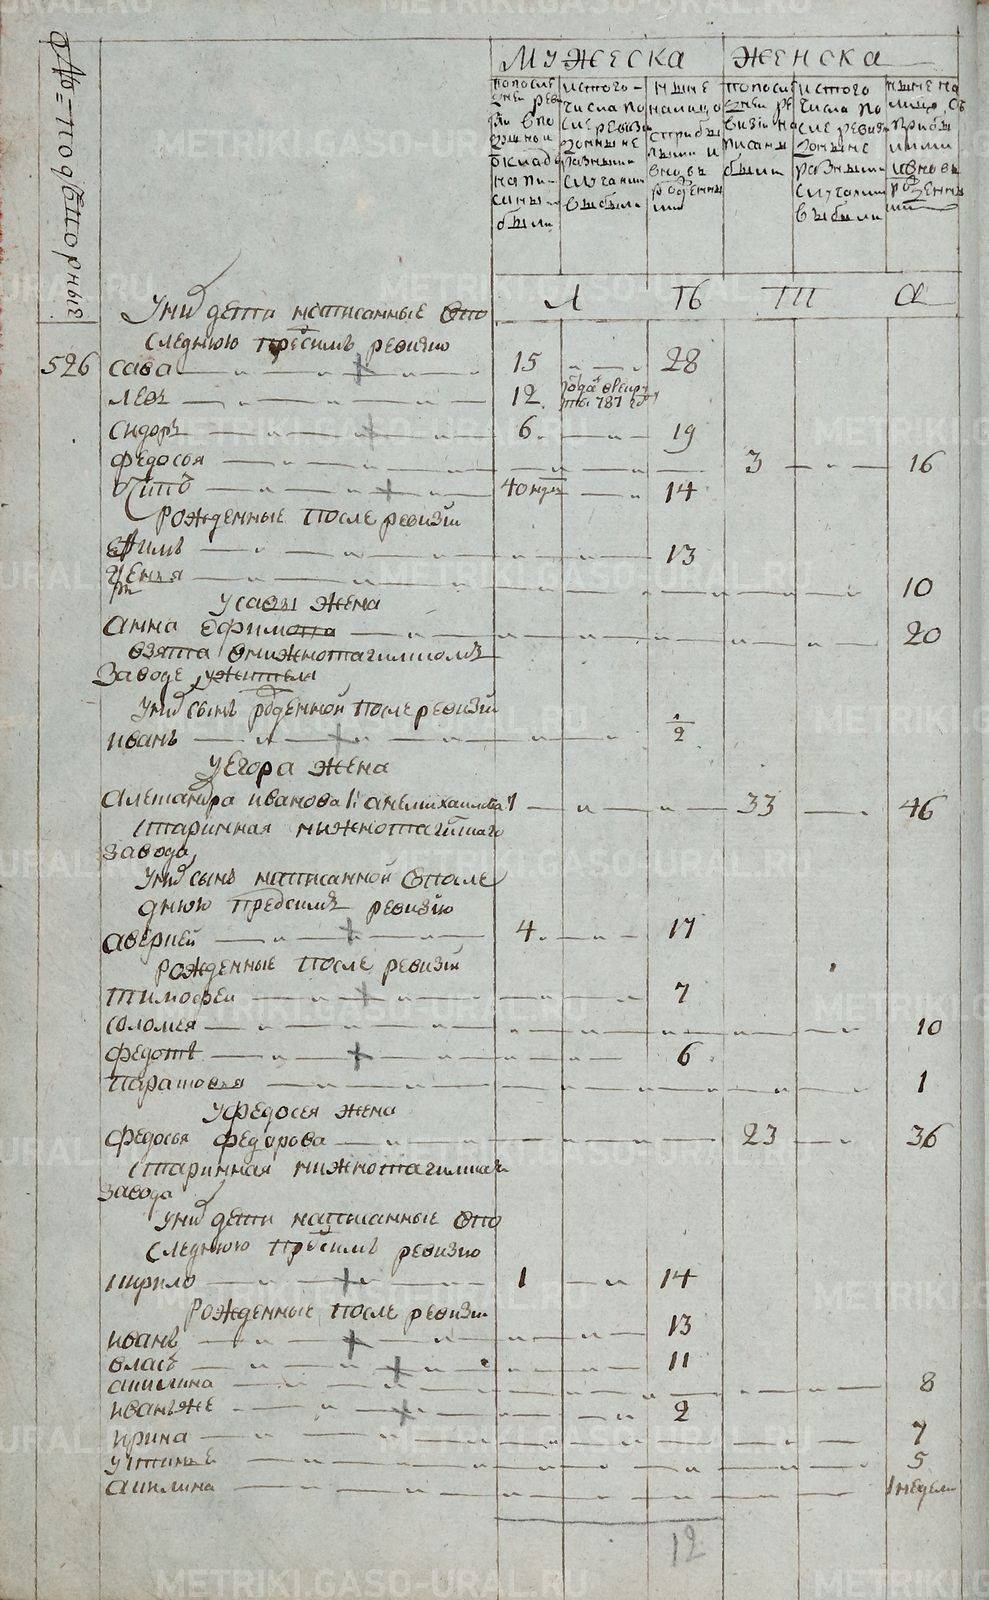 МУЖЕСКА ЖЕНСКА
попослѣдней ревизіи вподушной окладъ написаны были
истого числа после ревизіи доныне разными случаями выбыло
ныне налицо сприбылыми и вновь рожденными
попоследней ревизіи написаны были
истого числа после ревизіи доныне разными случаями выбыли
ныне налицо, съ прибылыми и вновь рожденными
Л ТБ ТП
Униѵ дети написанные впо
следнюю пресимъ ревизию
526 сава 15 28
левъ 12
сидоръ 6. 19
федосья 3 16
40 нед 14
Рожденные После ревизіи
ефимъ 13
10
Усавы жена
анна ефимова 20
взята внижнотагилскомъ
заводе, ужителя
унихъ сынъ рожденной после ревизіи
иванъ 1/2
УЕгора жена
Александра иванова 33 46
старинная нижнотагилскаго
завода,
унихъ сынъ написанной впосле
днюю предсимъ ревизію
аверкей 4. 17
Рожденные после ревизіи
тимофеи 7
соломея 10
федотъ 6
парасковья 1
Уфедосея жена
федосья федорова 23 36
старинная нижнотагилскаго
завода
унихъ дети написанные впо
следнюю пресимъ ревизию
кирило 1 14
Рожденные После ревизіи
иванъ 13
власъ 11
акилина 8
иванъже 2
ирина 7
устинье 5
акилина 1 недели
12
METRIKI.GASO-URAL.RU